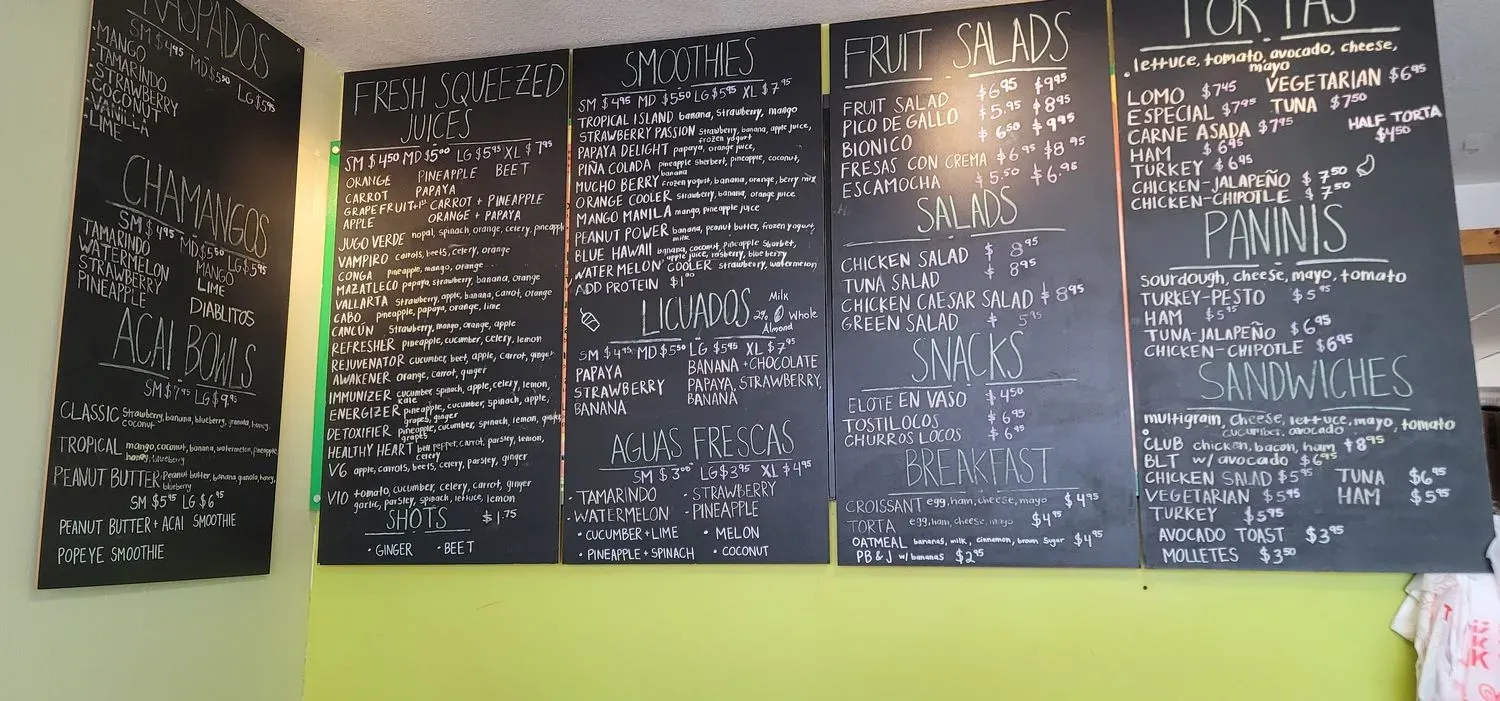 RASPADOS
SM $4.95 MD $5.50 LG $5.95
· MANGO
· TAMARINDO
· STRAWBERRY
· COCONUT
· VANILLA
· LIME
CHAMANGOS
SM $4.95 MD $5.50 LG $5.95
TAMARINDO
WATERMELON
STRAWBERRY
PINEAPPLE
MANGO
LIME
DIABLITOS
ACAI BOWLS
SM $7.95 LG $9.95
CLASSIC strawberry, banana, blueberry, granola, honey,
coconut
TROPICAL mango, coconut, banana, watermelon, pineapple,
honey, blueberry
PEANUT BUTTER, Peanut butter, banana, granola, honey,
blueberry
SM $5.95 LG $6.95
PEANUT BUTTER + ACAI SMOOTHIE
POPEYE SMOOTHIE
FRESH SQUEEZED
JUICES
SM $4.50 MD $5.00 LG $5.95 XL $7.95
ORANGE PINEAPPLE BEET
CARROT PAPAYA
GRAPEFRUIT CARROT + PINEAPPLE
APPLE ORANGE + PAPAYA
JUGO VERDE nopal, spinach, orange, celery, pineapple
VAMPIRO carrots, beets, celery, orange
CONGA pineapple, mango, orange
MAZATLECO papaya, strawberry, banana, orange
VALLARTA strawberry, apple, banana, carrot, orange
CABO pineapple, papaya, orange, lime
CANCÚN strawberry, mango, orange, apple
REFRESHER pineapple, cucumber, celery, lemon
REJUVENATOR cucumber, beet, apple, carrot, ginger
AWAKENER orange, carrot, ginger
IMMUNIZER cucumber, spinach, apple, celery, lemon,
kale
ENERGIZER pineapple, cucumber, spinach, apple,
grapes, ginger
DETOXIFIER pineapple, cucumber, spinach, lemon, ginger
grapes
HEALTHY HEART bell pepper, carrot, parsley, lemon,
celery
V6 apple, carrots, beets, celery, parsley, ginger
V10 tomato, cucumber, celery, carrot, ginger
garlic, parsley, spinach, lettuce, lemon
SHOTS $1.75
· GINGER · BEET
SMOOTHIES
SM $4.95 MD $5.50 LG $5.95 XL $7.95
TROPICAL ISLAND banana, strawberry, mango
STRAWBERRY PASSION strawberry, banana, apple juice,
frozen yogurt
PAPAYA DELIGHT papaya, orange juice,
PIÑA COLADA pineapple sherbert, pineapple, coconut,
banana
MUCHO BERRY frozen yogurt, banana, orange, berry mix
ORANGE COOLER strawberry, banana, orange juice
MANGO MANILA mango, pineapple juice
PEANUT POWER banana, peanut butter, frozen yogurt,
milk
BLUE HAWAII banana, coconut, pineapple sherbet,
apple juice, rasberry, blueberry
WATERMELON COOLER strawberry, watermelon
ADD PROTEIN $1.00
LICUADOS
Milk
2% Whole
Almond
SM $4.95 MD $5.50 LG $5.95 XL $7.95
PAPAYA
STRAWBERRY
BANANA
BANANA + CHOCOLATE
PAPAYA, STRAWBERRY,
BANANA
AGUAS FRESCAS
SM $3.00 LG $3.95 XL $4.95
· TAMARINDO · STRAWBERRY
· WATERMELON · PINEAPPLE
· CUCUMBER + LIME • MELON
· PINEAPPLE + SPINACH • COCONUT
FRUIT SALADS
FRUIT SALAD $6.95 $9.95
PICO DE GALLO $5.95 $8.95
BIONICO $6.50 $9.95
FRESAS CON CREMA $6.95 $8.95
ESCAMOCHA $5.50 $6.95
SALADS
CHICKEN SALAD $8.95
TUNA SALAD $8.95
CHICKEN CAESAR SALAD $8.95
GREEN SALAD $5.95
SNACKS
ELOTE EN VASO $4.50
TOSTILOCOS $6.95
CHURROS LOCOS $6.95
BREAKFAST
CROISSANT egg, ham, cheese, mayo $4.95
TORTA egg, ham, cheese, mayo $4.95
OATMEAL bananas, milk, cinnamon, brown sugar $4.95
PB & J w/ bananas $2.95
TORTAS
• lettuce, tomato, avocado, cheese,
mayo
LOMO $7.45 VEGETARIAN $6.95
ESPECIAL $7.95 TUNA $7.50
CARNE ASADA $7.95
HAM $6.95
TURKEY $6.95
CHICKEN-JALAPEÑO $7.50
CHICKEN-CHIPOTLE $7.50
HALF TORTA
$4.50
PANINIS
sourdough, cheese, mayo, tomato
TURKEY-PESTO $5.95
HAM $5.95
TUNA-JALAPEÑO $6.95
CHICKEN-CHIPOTLE $6.95
SANDWICHES
multigrain, cheese, lettuce, mayo, tomato
cucumber, avocado
CLUB chicken, bacon, ham $8.95
BLT w/ avocado $6.95
CHICKEN SALAD $5.95 TUNA $6.95
VEGETARIAN $5.95 HAM $5.95
TURKEY $5.95
AVOCADO TOAST $3.95
MOLLETES $3.50